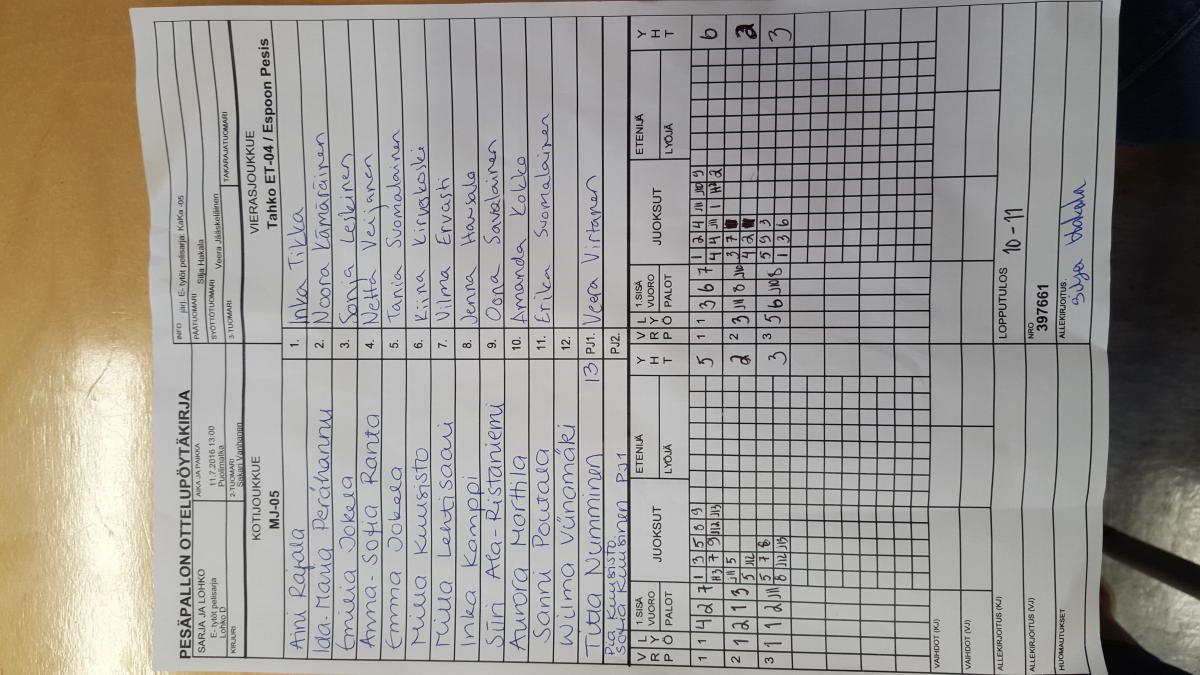 PESÄPALLON OTTELUPÖYTÄKIRJA
SARJA JA LOHKO
E- tytöt pelisarja
Lohko D
KIRJURI
AIKA JA PAIKKA
11.7.2016 13:00
Puolimatka
2-TUOMARI
INFO järj. E- tytöt pelisarja: KaKa -05
PÄÄTUOMARI Silja Hakala
SYÖTTÖTUOMARI Veera Jääskeläinen
3-TUOMARI
TAKARAJATUOMARI
KOTIJOUKKUE
MJ-05
VIERASJOUKKUE
Tahko ET-04 / Espoon Pesis
Aini Rajala 1. Inka Tikka
Ida-Maria Perähannu 2. Noora Kämäräinen
Emilia Jokela 3. Sonja Leskinen
Anna-Sofia Ranta 4. Netta Veijanen
Emma Jokela 5. Tania Suomalainen
Milla Kuusisto 6. Kiina Kirveskoski
Milla Lehtisaari 7. Vilma Ervasti
Inka Kamppi 8. Jenna Havsalo
Siiri Ala-Ristaniemi 9. Oona Savolainen
Aurora Marttila 10. Amanda Kokko
Sanni Poutala 11. Erika Suomalainen
Wilma Viinamäki 12.
Tutta Numminen 13 PJ1. Veera Virtanen
Pia Kuusisto
Sofia Kuusinen PJ1 PJ2.
V R P L Y Ö 1.SISÄ VUORO PALOT JUOKSUT ETENIJÄ LYÖJÄ Y H T
1 1 4 2 7 1 3 5 8 9 5
H3 7 9 J12 J13
2 1 2 1 3 J11 5 2
5 J12
3 1 1 2 J11 5 7 8 3
8 J12 J13
V R P L Y Ö 1.SISÄ VUORO PALOT JUOKSUT ETENIJÄ LYÖJÄ Y H T
1 1 3 6 7 1 2 4 J11 J10 9 6
4 4 J11 1 H7 2
2 3 J11 8 J10 3 7 2
4 2
3 5 6 J10 8 5 9 3 3
1 3 6
VAIHDOT (KJ)
VAIHDOT (VJ)
ALLEKIRJOITUS (KJ)
ALLEKIRJOITUS (VJ)
HUOMAUTUKSET
LOPPUTULOS 10-11
NRO
397661
ALLEKIRJOITUS
Silja Hakala